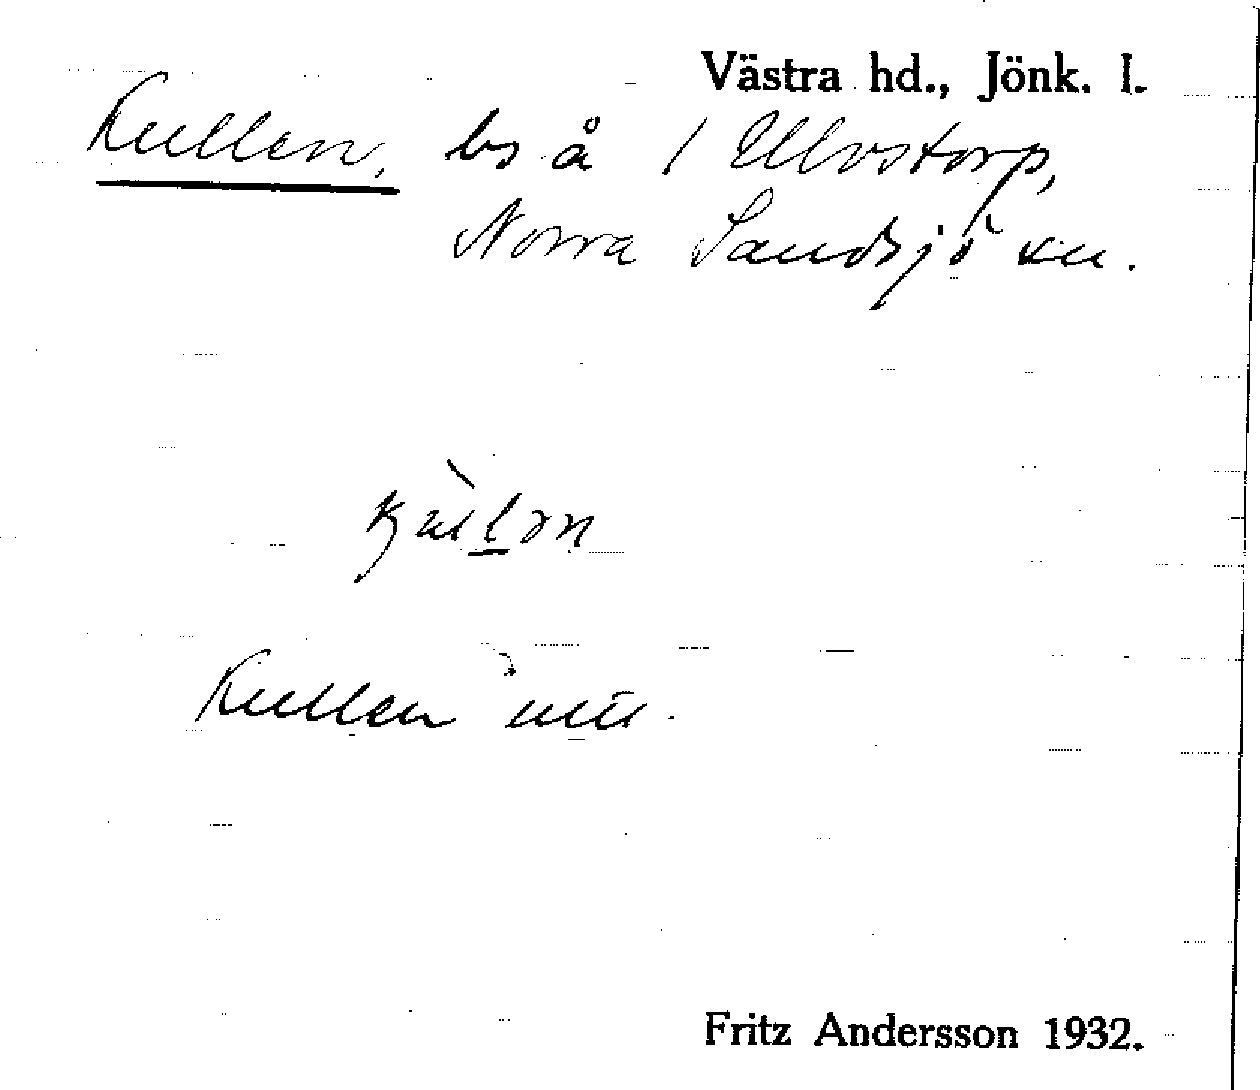 Västra hd., Jönk. l.
Kullen, bs å 1 Ulvstorp,
Norra Sandsjö sn.
Kullen
Fritz Andersson 1932.